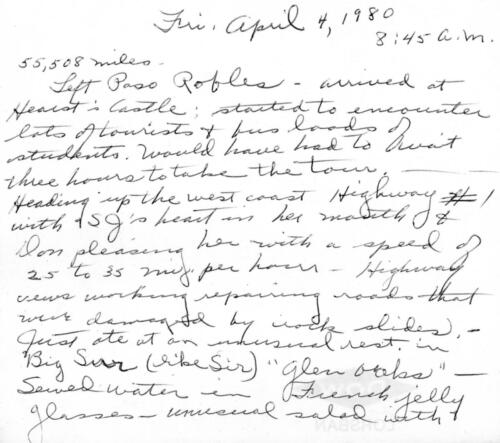 Fri. April 4, 1980
8:45 a.m.
55,508 miles.
Left Paso Robles - arrived at
Hearst's Castle; started to encounter
lots of tourists & bus loads of
students. Would have had to wait
three hours to take the tour. —
Heading up the west coast Highway #1
with SJ's heart in her mouth &
Don pleasing her with a speed of
25 to 35 mi, per hour - Highway
crews working repairing roads that
were damaged by rock slides. -
Just ate at an unusual rest. in
Big Surr (like Sir) "Glen Oaks" -
Served water in French jelly
glasses - unusual salad with